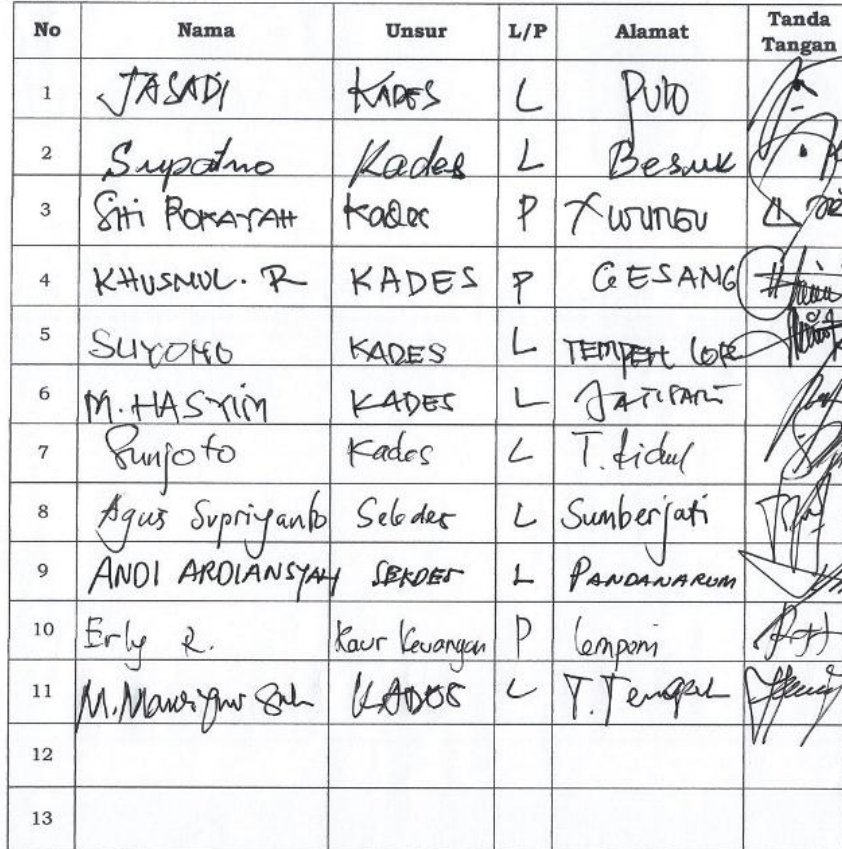 No Nama Unsur L/P Alamat Tanda Tangan
1 JASADI KADES L PULO
2 Supatno Kades L Besuk
3 Siti ROKAYAH Kades P
4 KHUSNUL. R KADES P GESANG
5 SUYONO KADES L TEMPEH LOR
6 M. HASYIM KADES L JATISARI
7 Sunjoto Kades L T. Kidul
8 Agus Supriyanto Sekdes L Sumberjati
9 ANDI ARDIANSYAH SEKDES L PANDANARUM
10 Erly R. Kaur Keuangan P
11 M. KADES L T. Tengah
12
13